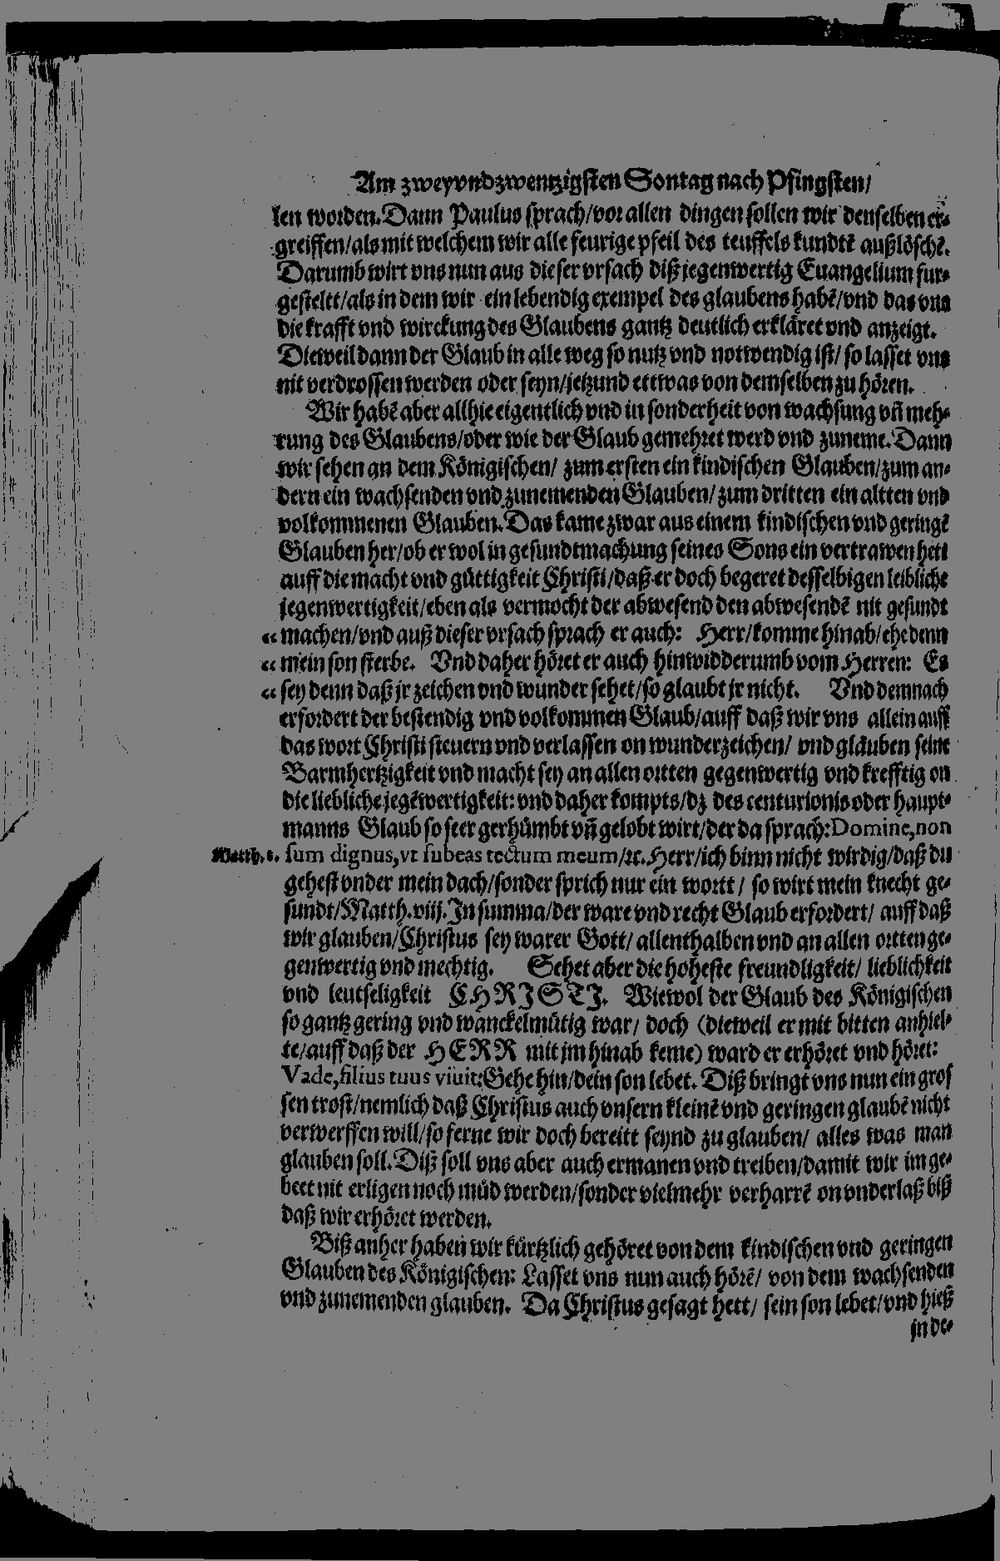 Am zweyvndzwentzigsten Sontag nach Pfingsten/
len worden. Dann Paulus sprach/vor allen dingen sollen wir denselben er-
greiffen/als mit welchem wir alle feurige pfeil des teuffels kundtē außlöschē.
Darumb wirt vns nun aus dieser vrsach diß jegenwertig Euangelium fur-
gesteltt/als in dem wir ein lebendig exempel des glaubens habē/vnd das vns
die krafft vnd wirckung des Glaubens gantz deutlich erkläret vnd anzeigt.
Dieweil dann der Glaub in alle weg so nutz vnd notwendig ist/ so lasset vns
nit verdrossen werden oder seyn/jetzund ettwas von demselben zu hören.
Wir habē aber allhie eigentlich vnd in sonderheit von wachsung vñ meh-
rung des Glaubens/oder wie der Glaub gemehret werd vnd zuneme. Dann
wir sehen an dem Königischen/ zum ersten ein kindischen Glauben/zum an-
dern ein wachsenden vnd zunemenden Glauben/ zum dritten ein altten vnd
volkommenen Glauben. Das kame zwar aus einem kindischen vnd geringē
Glauben her/ob er wol in gesundtmachung seines Sons ein vertrawen hett
auff die macht vnd güttigkeit Christi/daß er doch begeret desselbigen leibliche
jegenwertigkeit/eben als vermocht der abwesend den abwesendē nit gesundt
" machen/vnd auß dieser vrsach sprach er auch: Herr/komme hinab/ehe denn
" mein son sterbe. Vnd daher höret er auch hinwidderumb vom Herren: Es
" sey denn daß jr zeichen vnd wunder sehet/so glaubt jr nicht. Vnd demnach
erfordert der bestendig vnd volkommen Glaub/auff daß wir vns allein auff
das wort Christi steuern vnd verlassen on wunderzeichen/ vnd gläuben seine
Barmhertzigkeit vnd macht sey an allen ortten gegenwertig vnd krefftig on
die liebliche jegēwertigkeit: vnd daher kompts/dz des centurionis oder haupt-
manns Glaub so seer gerhümbt vñ gelobt wirt/der da sprach: Domine, non
Matth. 8. sum dignus, vt subeas tectum meum/ꝛc. Herr/ich binn nicht wirdig/daß du
gehest vnder mein dach/sonder sprich nur ein wortt/ so wirt mein knecht ge-
sundt/Matth. viij. In summa/der ware vnd recht Glaub erfordert/ auff daß
wir glauben/Christus sey warer Gott/ allenthalben vnd an allen ortten ge-
genwertig vnd mechtig. Sehet aber die hoheste freundligkeit/ lieblichkeit
vnd leutseligkeit CHRISTI. Wiewol der Glaub des Königischen
so gantz gering vnd wanckelmütig war/ doch (dieweil er mit bitten anhiel-
te/auff daß der HERR mit jm hinab keme) ward er erhöret vnd höret:
Vade, filius tuus viuit: Gehe hin/dein son lebet. Diß bringt vns nun ein gros
sen trost/nemlich daß Christus auch vnsern kleinē vnd geringen glaubē nicht
verwerffen will/so ferne wir doch bereitt seynd zu glauben/ alles was man
glauben soll. Diß soll vns aber auch ermanen vnd treiben/damit wir im ge-
beet nit erligen noch müd werden/sonder vielmehr verharrē on vnderlaß biß
daß wir erhöret werden.
Biß anher haben wir kürtzlich gehöret von dem kindischen vnd geringen
Glauben des Königischen: Lasset vns nun auch hörē/ von dem wachsenden
vnd zunemenden glauben. Da Christus gesagt hett/ sein son lebet/vnd hieß
jn de-